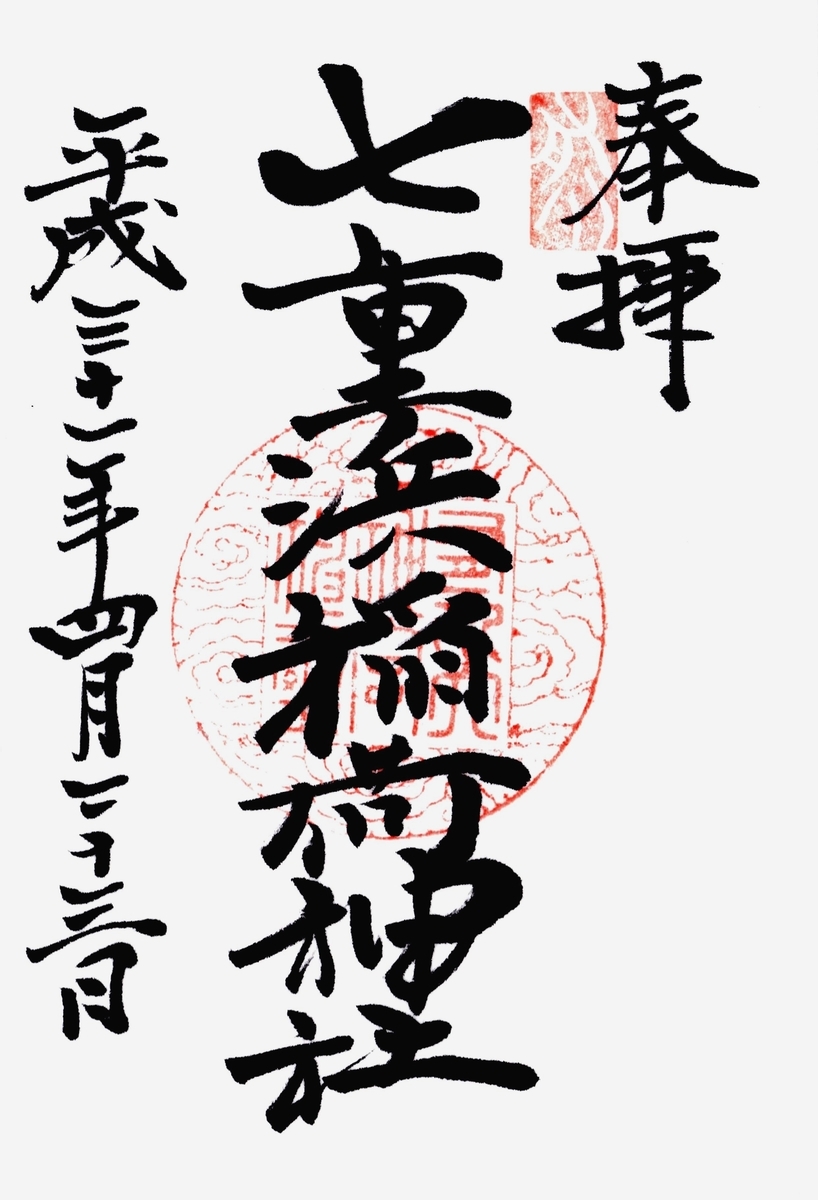 奉拝
七重浜稲荷神社
平成三十一年四月二十三日